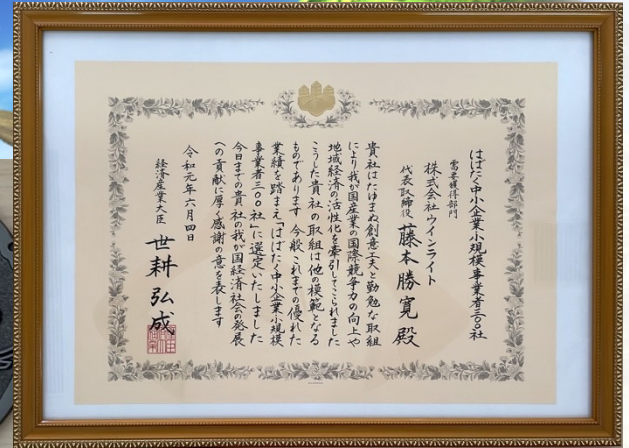 はばたく中小企業・小規模事業者三〇〇社
需要獲得部門
株式会社ウインライト
代表取締役 藤本勝寛 殿
貴社はたゆまぬ創意工夫と勤勉な取組
により我が国産業の国際競争力の向上や
地域経済の活性化を牽引してこられました
こうした貴社の取組は他の模範となる
ものであります 今般 これまでの優れた
業績を踏まえ「はばたく中小企業・小規模
事業者三〇〇社」に選定いたしました
今日までの貴社の我が国経済社会の発展
への貢献に厚く感謝の意を表します
令和元年六月四日
経済産業大臣 世耕弘成